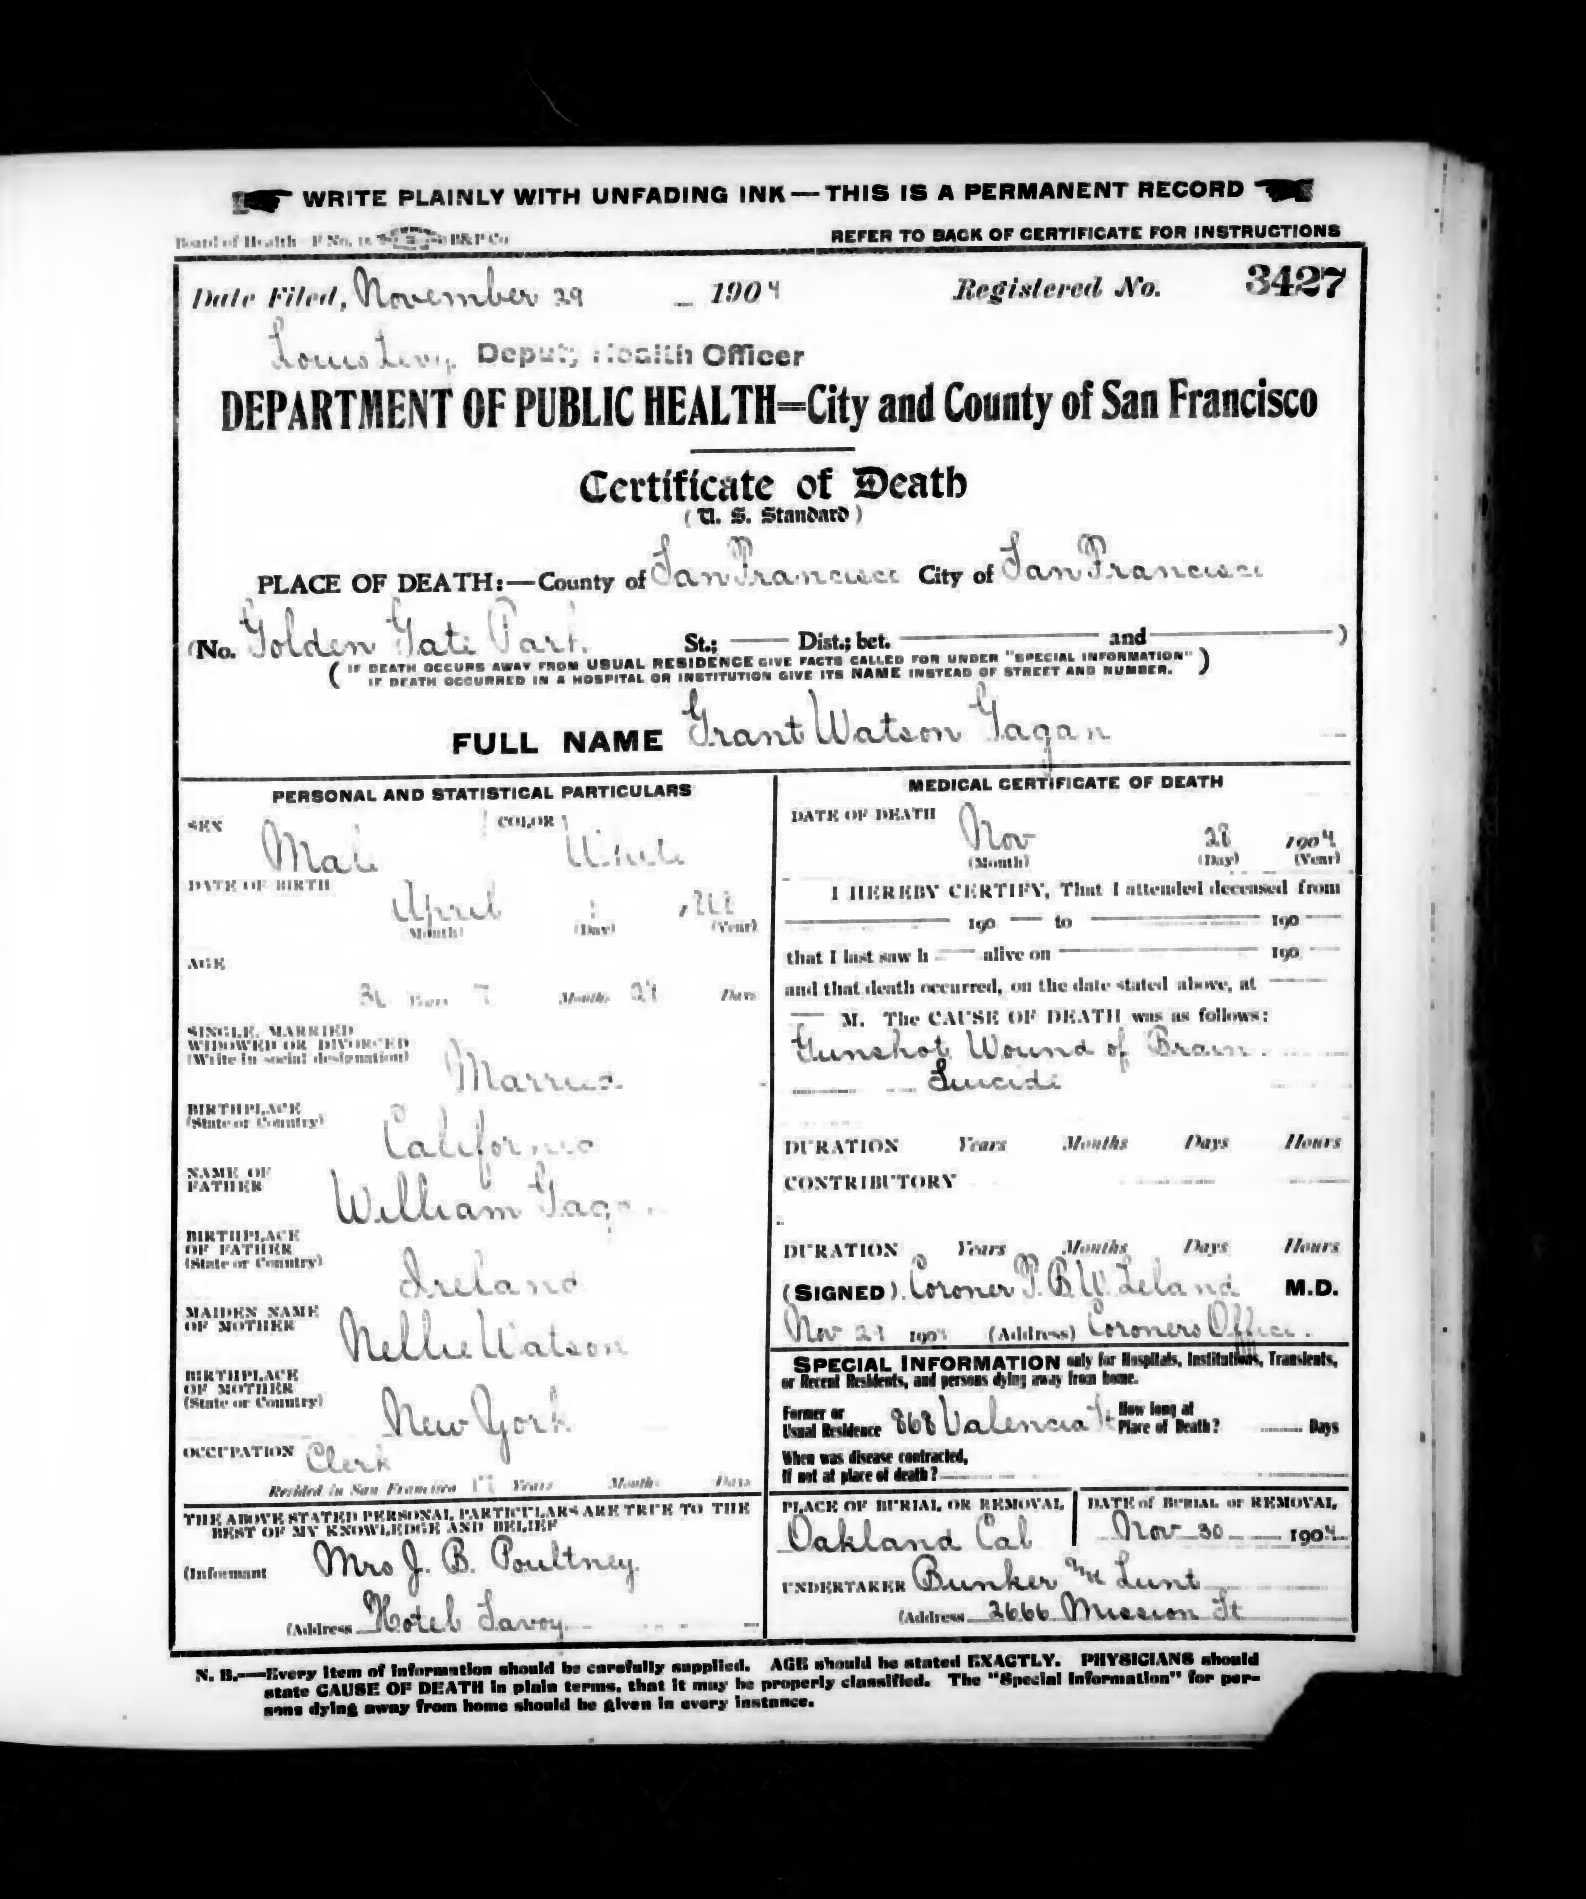 WRITE PLAINLY WITH UNFADING INK—THIS IS A PERMANENT RECORD
Board of Health—F No. 15 B&P Co
REFER TO BACK OF CERTIFICATE FOR INSTRUCTIONS
Date Filed, November 29 1904 Registered No. 3427
Louis Levy Deputy Health Officer
DEPARTMENT OF PUBLIC HEALTH=City and County of San Francisco
Certificate of Death
(U. S. Standard)
PLACE OF DEATH:—County of San Francisco City of San Francisco
(No. Golden Gate Park St.; — Dist.; bet. — and — )
( IF DEATH OCCURS AWAY FROM USUAL RESIDENCE GIVE FACTS CALLED FOR UNDER "SPECIAL INFORMATION" )
IF DEATH OCCURRED IN A HOSPITAL OR INSTITUTION GIVE ITS NAME INSTEAD OF STREET AND NUMBER.
FULL NAME Grant Watson Gagan
PERSONAL AND STATISTICAL PARTICULARS
SEX Male COLOR White
DATE OF BIRTH April 1
(Month) (Day) (Year)
AGE
36 Years 7 Months 27 Days
SINGLE, MARRIED
WIDOWED OR DIVORCED
(Write in social designation) Married
BIRTHPLACE
(State or Country) California
NAME OF
FATHER William Gagan
BIRTHPLACE
OF FATHER
(State or Country) Ireland
MAIDEN NAME
OF MOTHER Nellie Watson
BIRTHPLACE
OF MOTHER
(State or Country) New York
OCCUPATION Clerk
Resided in San Francisco Years Months Days
THE ABOVE STATED PERSONAL PARTICULARS ARE TRUE TO THE
BEST OF MY KNOWLEDGE AND BELIEF
(Informant Mrs J. B. Poultney
(Address Hotel Savoy
MEDICAL CERTIFICATE OF DEATH
DATE OF DEATH Nov 28 1904
(Month) (Day) (Year)
I HEREBY CERTIFY, That I attended deceased from
— 190 — to — 190 —
that I last saw h — alive on — 190 —
and that death occurred, on the date stated above, at —
— M. The CAUSE OF DEATH was as follows:
Gunshot Wound of Brain.
Suicide
DURATION Years Months Days Hours
CONTRIBUTORY
DURATION Years Months Days Hours
(SIGNED) Coroner T. B. W. Leland M.D.
Nov 29 1904 (Address) Coroners Office.
SPECIAL INFORMATION only for Hospitals, Institutions, Transients,
or Recent Residents, and persons dying away from home.
Former or
Usual Residence 868 Valencia St How long at
Place of Death? Days
When was disease contracted,
If not at place of death?
PLACE OF BURIAL OR REMOVAL DATE of BURIAL or REMOVAL
Oakland Cal Nov 30 1904
UNDERTAKER Bunker & Lunt
(Address 2666 Mission St
N. B.—Every item of information should be carefully supplied. AGE should be stated EXACTLY. PHYSICIANS should
state CAUSE OF DEATH in plain terms, that it may be properly classified. The "Special Information" for per-
sons dying away from home should be given in every instance.